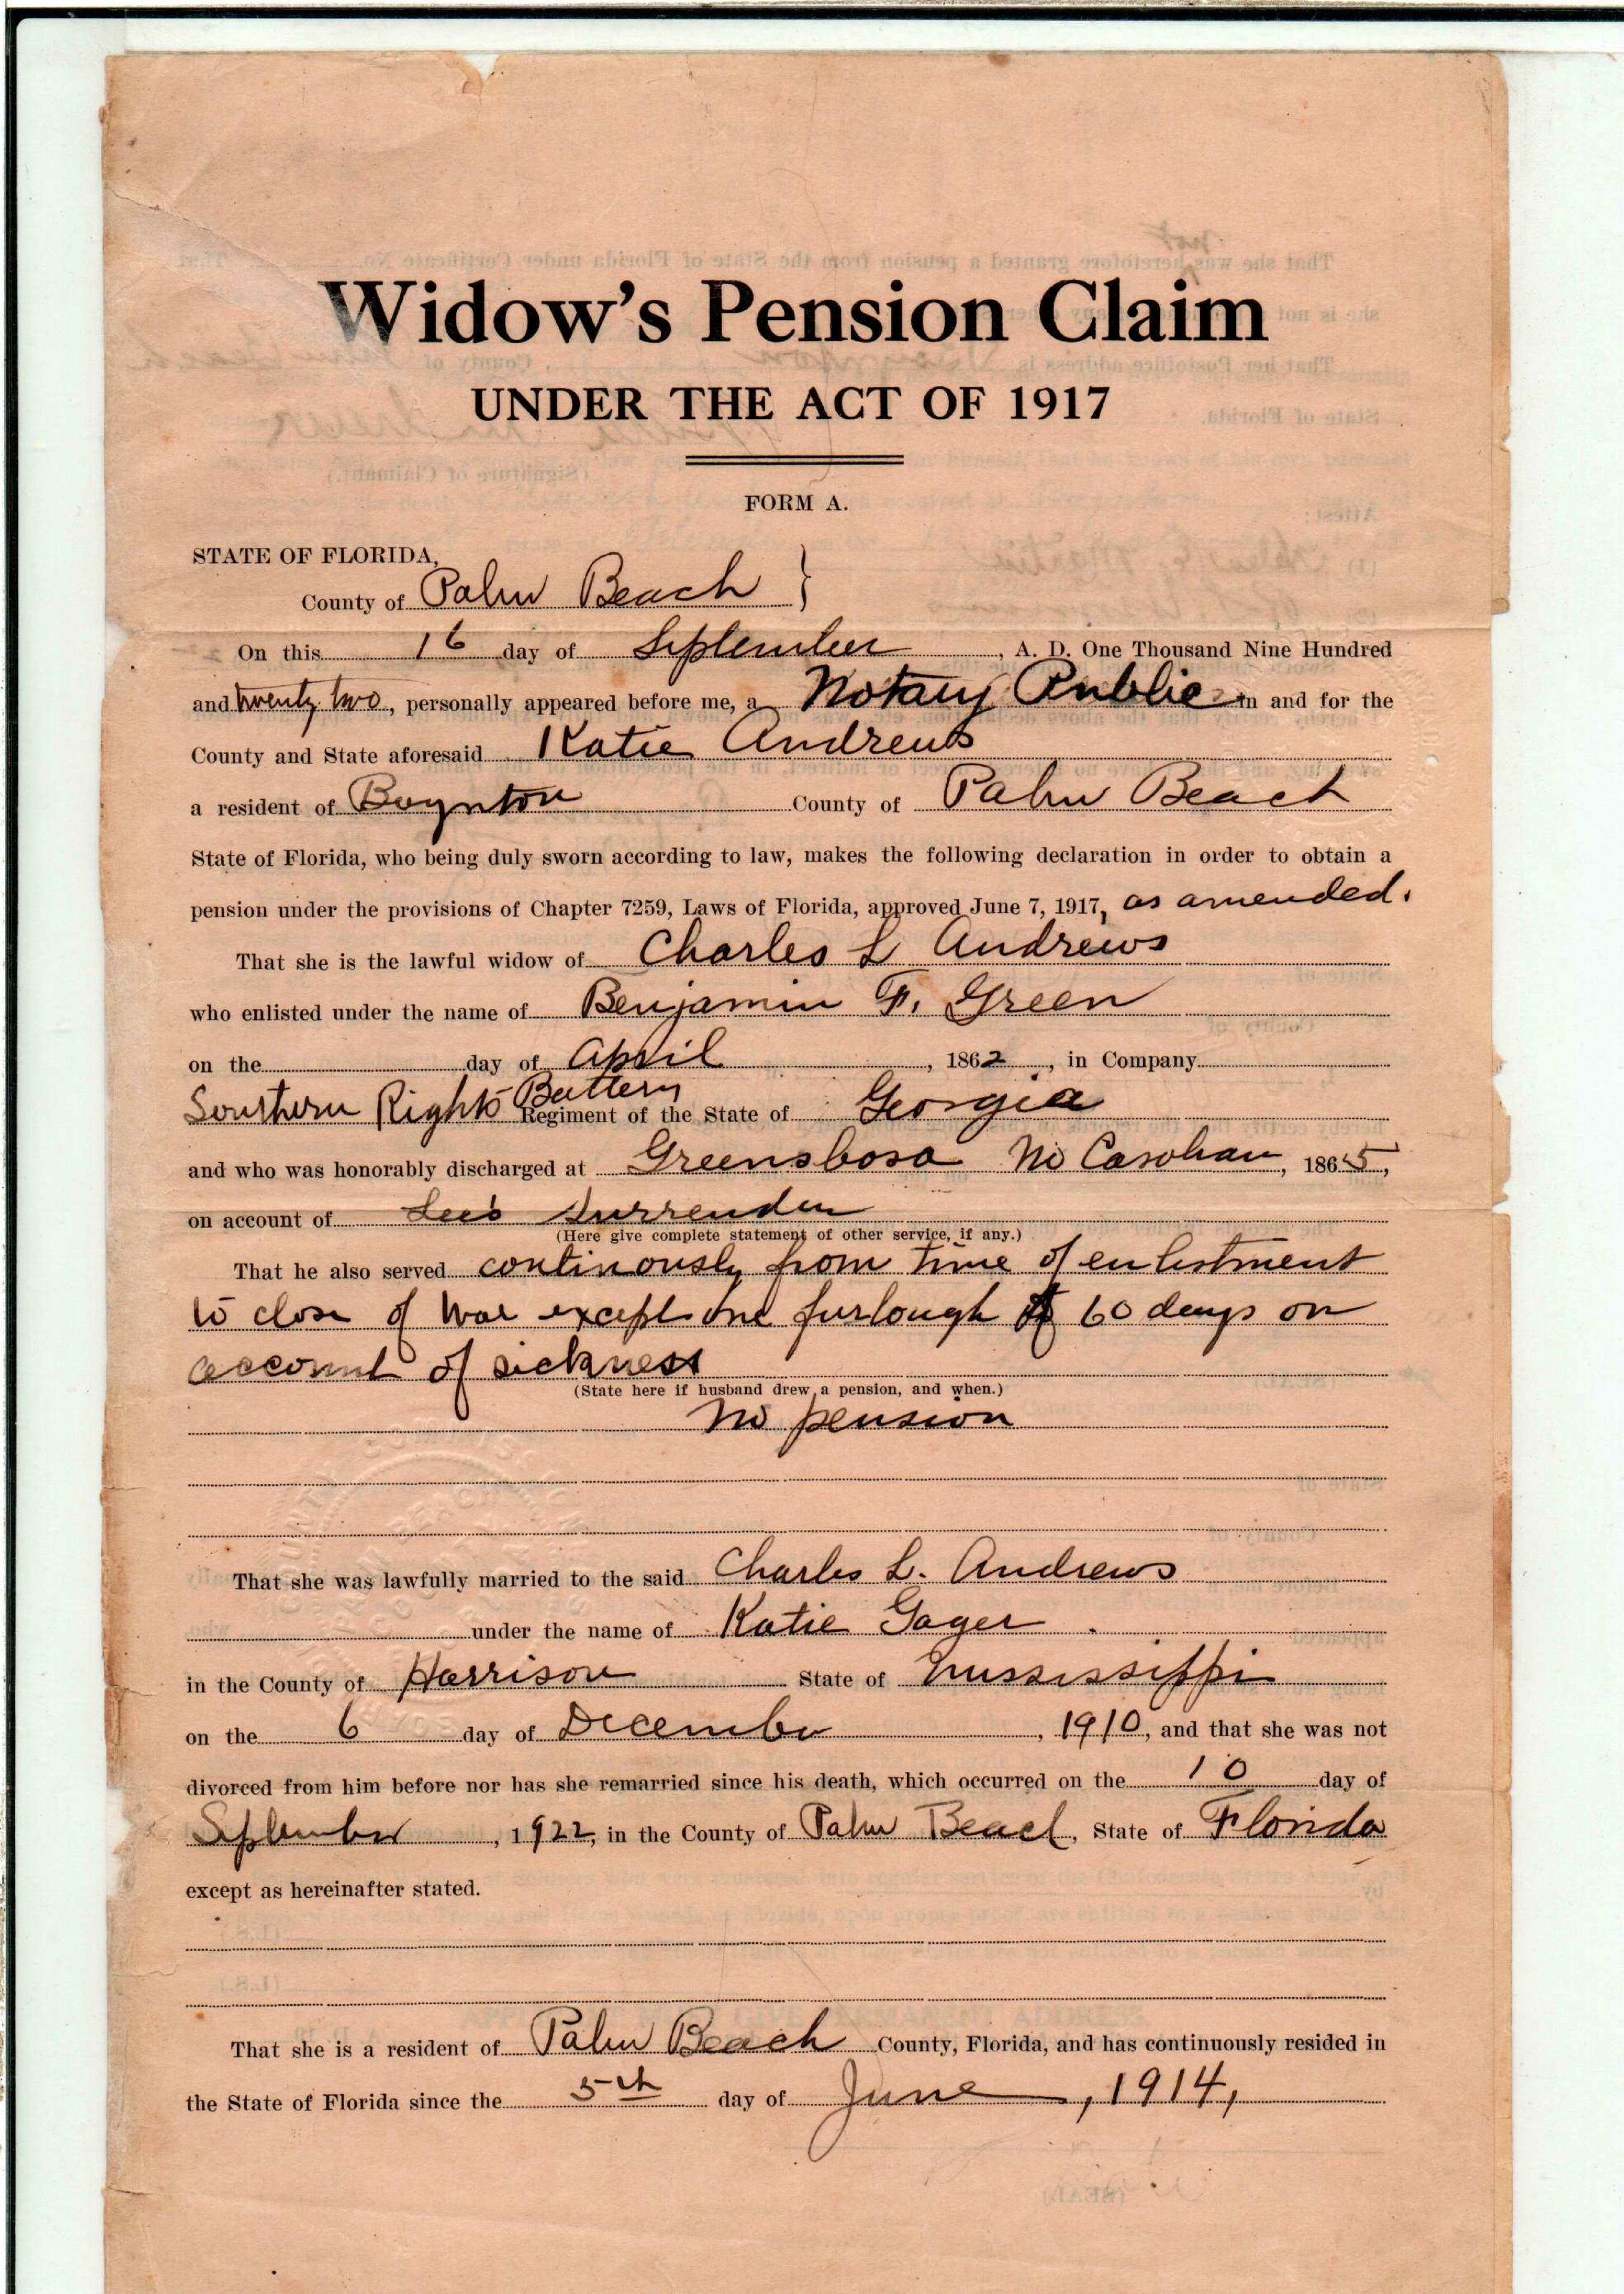 Widow's Pension Claim
UNDER THE ACT OF 1917
FORM A.
STATE OF FLORIDA,
County of Palm Beach }
On this 16 day of September, A. D. One Thousand Nine Hundred
and twenty two, personally appeared before me, a Notary Public in and for the
County and State aforesaid Katie Andrews
a resident of Boynton County of Palm Beach
State of Florida, who being duly sworn according to law, makes the following declaration in order to obtain a
pension under the provisions of Chapter 7259, Laws of Florida, approved June 7, 1917, as amended.
That she is the lawful widow of Charles L Andrews
who enlisted under the name of Benjamin F. Green
on the day of April, 1862, in Company
Southern Rights Battery Regiment of the State of Georgia
and who was honorably discharged at Greensboro No Carolian, 1865,
on account of Lee's Surrender
(Here give complete statement of other service, if any.)
That he also served continously from time of enlistment
to close of War except one furlough of 60 days on
account of sickness
(State here if husband drew a pension, and when.)
No pension
That she was lawfully married to the said Charles L. Andrews
under the name of Katie Gager.
in the County of Harrison State of Mississippi
on the 6 day of December, 1910, and that she was not
divorced from him before nor has she remarried since his death, which occurred on the 10 day of
September, 1922, in the County of Palm Beach, State of Florida
except as hereinafter stated.
That she is a resident of Palm Beach County, Florida, and has continuously resided in
the State of Florida since the 5th day of June, 1914,